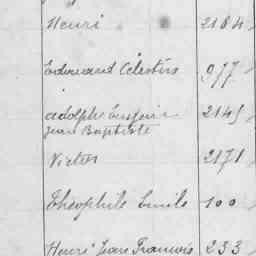 Henri 2184
Edouard Célestin 977
Adolphe Eugène 2145
Jean Baptiste
Victor 2171
Théophile Emile 100
Henri Jean François 233